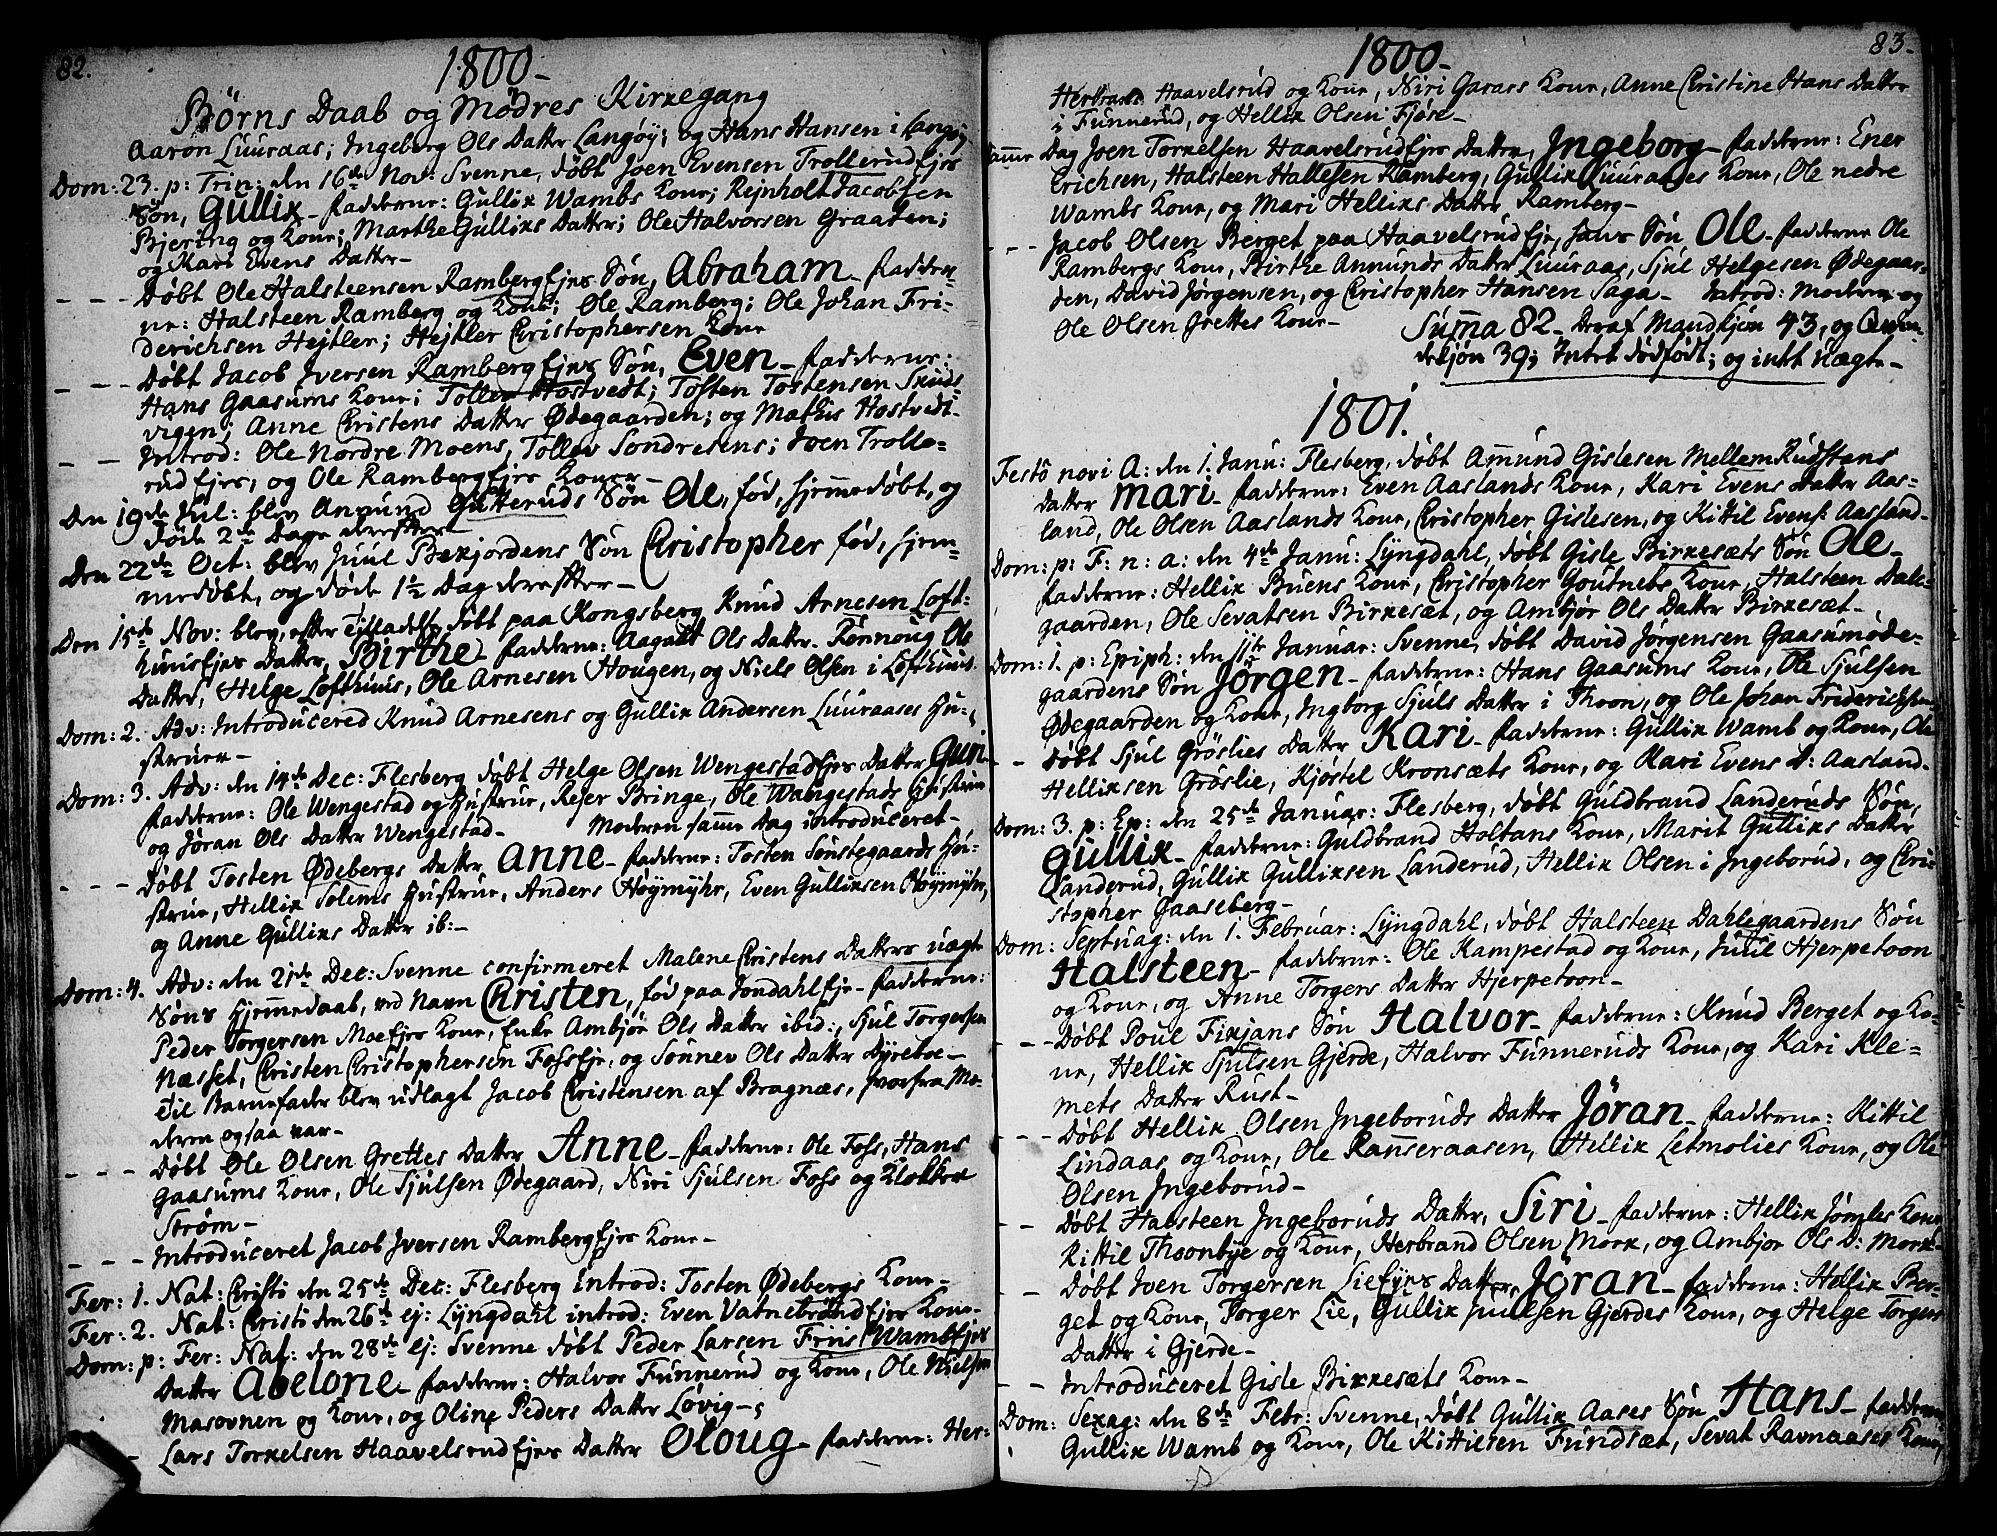 82.
1800-
Börns Daab og Mödres Kirkegang
Aaron Luuraas; Ingeberg Ols Datter Langöy; og Hans Hansen i Langöj
Dom: 23. p: Trin: den 16de Nov: Svenne, döbt Joen Evensen TrollerudEjes
Sön, Gullik - fadderne: Gullik Wambs Kone; Rejnholt Jacobsen
Bjering og Kone; Marthe Gulliks Datter; Ole Halvorsen Graaten;
og Kari Evens Datter -
- - - Döbt Ole Halsteensen RambergEjes Sön, Abraham - fadder-
ne: Halsteen Ramberg og Kone; Ole Ramberg; Ole Johan Fri-
derichsen Hejtler; Hejtler Christophersen Kone
- - - Döbt Jacob Iversen RambergEjes Sön, Even - fadderne:
Hans Gaasums Kone; Tollev Hostvedt; Tosten Tostensen Skuds-
vigen; Anne Christens Datter Ødegaarden; og Mathis Hostvedt-
- - Introd: Ole Nordre Moens, Tollev Sondresens; Joen Trolle-
rudEjes, og Ole RambergEjes Koner -
Den 19de Jul: blev Amund Gutteruds Sön Ole, fød, hjemmedöbt, og
döde 2de Dage derefter -
Den 22de Oct: blev Juul Bekjordens Sön Christopher fød, hjem-
medöbt, og döde 1½ Dag derefter -
Den 15de Nov: blev, efter Tilladelse döbt paa Kongsberg Knud Arnesen Loft-
huusEjes Datter, Birthe - fadderne: Aagaat Ols Datter Rönnoug Ols
Datter, Helge Lofthuus, Ole Arnesen Hougen, og Niels Olsen i Lofthuus.
Dom: 2. Adv: Introducered Knud Arnesens og Gullik Andersen Luuraases Hu-
struer -
Dom: 3. Adv: den 14de Dec: Flesberg döbt Helge Olsen WengestadEjes Datter Guri
fadderne: Ole Wengestad og Hustrue, Reser Bringe, Ole Wangestads Hustrue
og Jöran Ols Datter Wengestad - Moderen samme Dag introduceret -
- - - Döbt Tosten Ødebergs Datter Anne - fadderne: Tosten Sönstegaards Hu-
strue, Hellik Solems Hustrue, Anders Höymyhr, Even Gulliksen Höymyhr,
og Anne Gulliks Datter ib: -
Dom: 4. Adv: den 21de Dec: Svenne confirmeret Malene Christens Datters uægte
Söns Hjemmedaab, ved Navn Christen, fød paa JondahlEje - fadderne:
Peder Torgersen MoeEjes Kone, Enke Ambjör Ols Datter ibid:, Sjul Torgersen
Næsset, Christen Christophersen FossEje, og Sönnev Ols Datter Dyreboe -
Til Barnefader blev udlagt Jacob Christensen af Bragnæs, hvorfra Mo-
deren ogsaa var -
- - - Döbt Ole Olsen Grettes Datter Anne - fadderne: Ole Foss, Hans
Gaasums Kone, Ole Sjulsen Ødegaard, Niri Sjulsen Foss og Klokker
Ström -
- - - Introduceret Jacob Iversen RambergEjes Kone -
Fer: 1. Nat: Christi den 25de Dec: Flesberg Introd: Tosten Ødebergs Kone -
Fer: 2. Nat: Christi den 26de ej: Lyngdahl introd: Even VatnebröndEjes Kone -
Dom: p: Fer: Nat: den 28de ej: Svenne döbt Peder Larsen Friis WambsEjes
Datter Abelone - fadderne: Halvor Funnerud og Kone, Ole Nielsen
Masovnen og Kone, og Oline Peders Datter Lövig -
- Lars Torkelsen HaavelsrudEjes Datter Oloug - fadderne: Her-
83.
1800-
Herbrand Haavelsrud og Kone, Niri Garaas Kone, Anne Christine Hans Datter
i Funnerud, og Hellik Olsen Fjøse -
Samme Dag Joen Torkelsen HaavelsrudEjes Datter, Ingeborg - fadderne: Ener
Erichsen, Halsteen Hallesen Ramberg, Gullik Luuraases Kone, Ole nedre
Wambs Kone, og Mari Helliks Datter Ramberg -
- - - Jacob Olsen Berget paa HaavelsrudEje, hans Sön, Ole - fadderne Ole
Rambergs Kone, Birthe Amunds Datter Luuraas, Sjul Helgesen Ødegaar-
den, David Jörgensen, og Christopher Hansen Saga - Introd: Moderen og
Ole Olsen Grettes Kone -
Summa 82 - Deraf Mandkjön 43, og Qvin-
dekjön 39; Intet dödfödt; og intet uægte -
1801.
Festo novi A: den 1. Janu: Flesberg, döbt Amund Gislesen MellemRudstens
Datter Mari - fadderne: Even Aaslands Kone, Kari Evens Datter Aas-
land, Ole Olsen Aaslands Kone, Christopher Gislesen, og Kittil Evens: Aasland -
Dom: p: F: n: a: den 4de Janu: Lyngdahl, döbt Gisle Birkesæts Sön Ole -
fadderne: Hellik Buens Kone, Christopher Goutnebs Kone, Halsteen Dale-
gaarden, Ole Sevatsen Birkesæt, og Ambjör Ols Datter Birkesæt -
Dom: 1. p: Epiph: den 11te Januar: Svenne, döbt David Jörgensen Gaasumøde-
gaardens Sön Jörgen - fadderne: Hans Gaasums Kone, Ole Sjulsen
Ødegaarden og Kone, Ingborg Sjuls Datter i Thoen, og Ole Johan Friderichsen -
- - Döbt Sjul Gröslies Datter Kari - fadderne: Gullik Wamb og Kone, Ole
Helliksen Gröslie, Kjöstel Kronsæts Kone, og Kari Evens D: Aasland -
Dom: 3. p: Ep: den 25de Januar: Flesberg, döbt Guldbrand Landeruds Sön,
Gullik - fadderne: Guldbrand Holtans Kone, Marit Gulliks Datter
Landerud, Gullik Gulliksen Landerud, Hellik Olsen i Ingeborud, og Chri-
stopher Gaaseberg -
Dom: Septuag: den 1. Februar: Lyngdahl, döbt Halsteen Dahlegaardens Sön
Halsteen - fadderne: Ole Kampestad og Kone, Juul Hjerpetoen
og Kone, og Anne Torgers Datter Hjerpetoen -
- - - Döbt Poul Fikjans Sön Halvor - fadderne: Knud Berget og Ko-
ne, Hellik Sjulsen Gjerde, Halvor Funneruds Kone, og Kari Kle-
mets Datter Rust -
- - - Döbt Hellik Olsen Ingeboruds Datter Jöran - fadderne: Kittil
Lindaas og Kone, Ole Ranseraasen, Hellik Letmolies Kone, og Ole
Olsen Ingeborud -
- - Döbt Halsteen Ingeboruds Datter, Siri - fadderne: Hellik Jömles Kone
Kittil Thoenbye og Kone, Herbrand Olsen Mork, og Ambjor Ols D: Mork -
- Döbt Joen Torgersen LieEjes Datter, Jöran - fadderne: Hellik Ber-
get og Kone, Torger Lie, Gullik Juulsen Gjerdes Kone, og Helge Torgers
Datter i Gjerde -
- - Introduceret Gisle Birkesæts Kone -
Dom: Sexag: den 8de Febr: Svenne, döbt Gullik Aases Sön Hans - fadderne
Gullik Wamb og Kone, Ole Kittilsen Fundsæt, Sevat Ravnaases Kone,